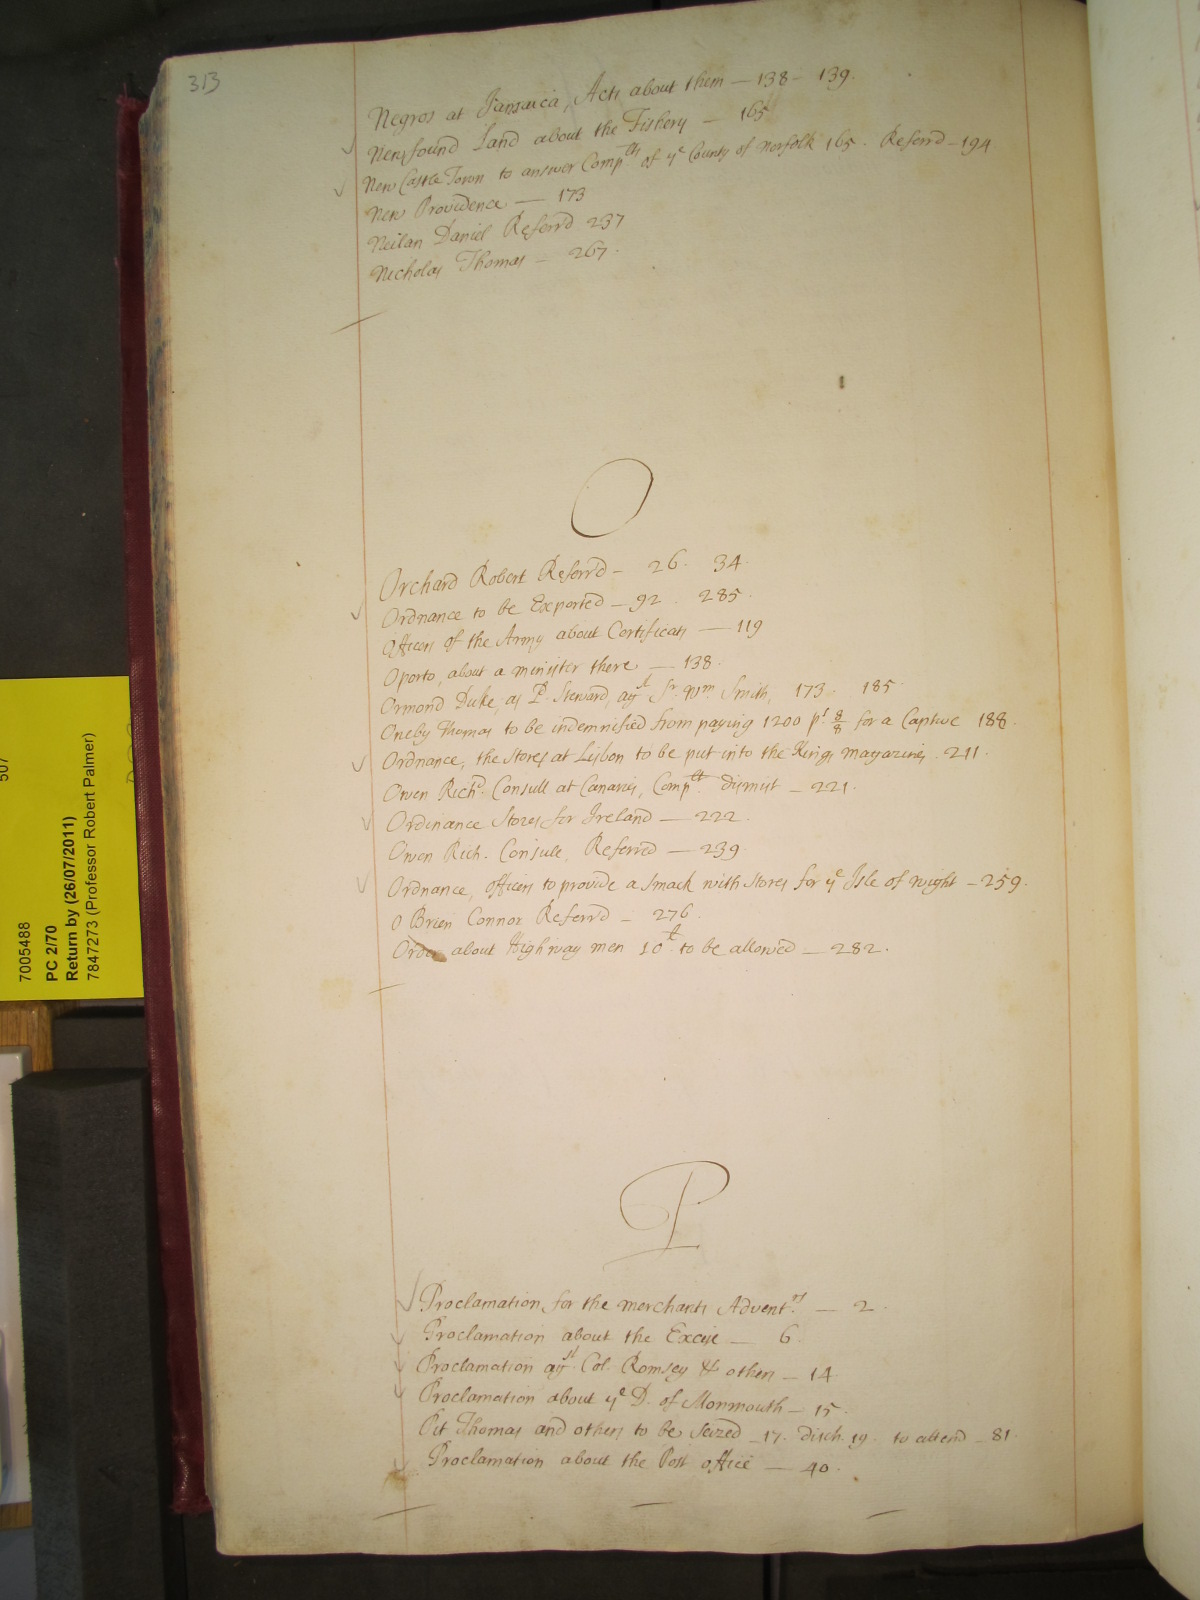 313
Negros at Jamaica, Acts about them — 138 – 139.
Newfound Land about the Fishery — 165
New Castle Town to answer Compts of ye County of Norfolk 165. Referrd – 194
New Providence — 173
Neilan Daniel Referrd 237
Nicholas Thomas – 267.
O
Orchard Robert Referr'd – 26. 34.
Ordnance to be Exported – 92. 285.
Officers of the Army about Certificats — 119
Oporto, about a minister there — 138.
Ormond Duke, as Ld. Steward, agt Sr. Wm. Smith, 173. 185.
Oneby Thomas to be indemnified from paying 1200 ps 8/8 for a Captive 188.
Ordnance, the Stores at Lisbon to be put into the Kings magazines. 211.
Owen Richd. Consull at Canaries, Complt. dismist – 221.
Ordinance Stores for Ireland — 222.
Owen Rich. Consule, Referred — 239.
Ordnance, officers to provide a Smack with Stores for ye Isle of wight – 259.
O Brien Connor Referr'd – 276.
Order about Highway men 10£ to be allowed – 282.
P
Proclamation for the merchants Adventrs. — 2.
Proclamation about the Excise — 6.
Proclamation agst. Col. Romsey & others – 14
Proclamation about ye D. of Monmouth – 15.
Pit Thomas and others to be Seized – 17. disch. 19. to attend – 81.
Proclamation about the Post office — 40.
507
7005488
PC 2/70
Return by (26/07/2011)
7847273 (Professor Robert Palmer)